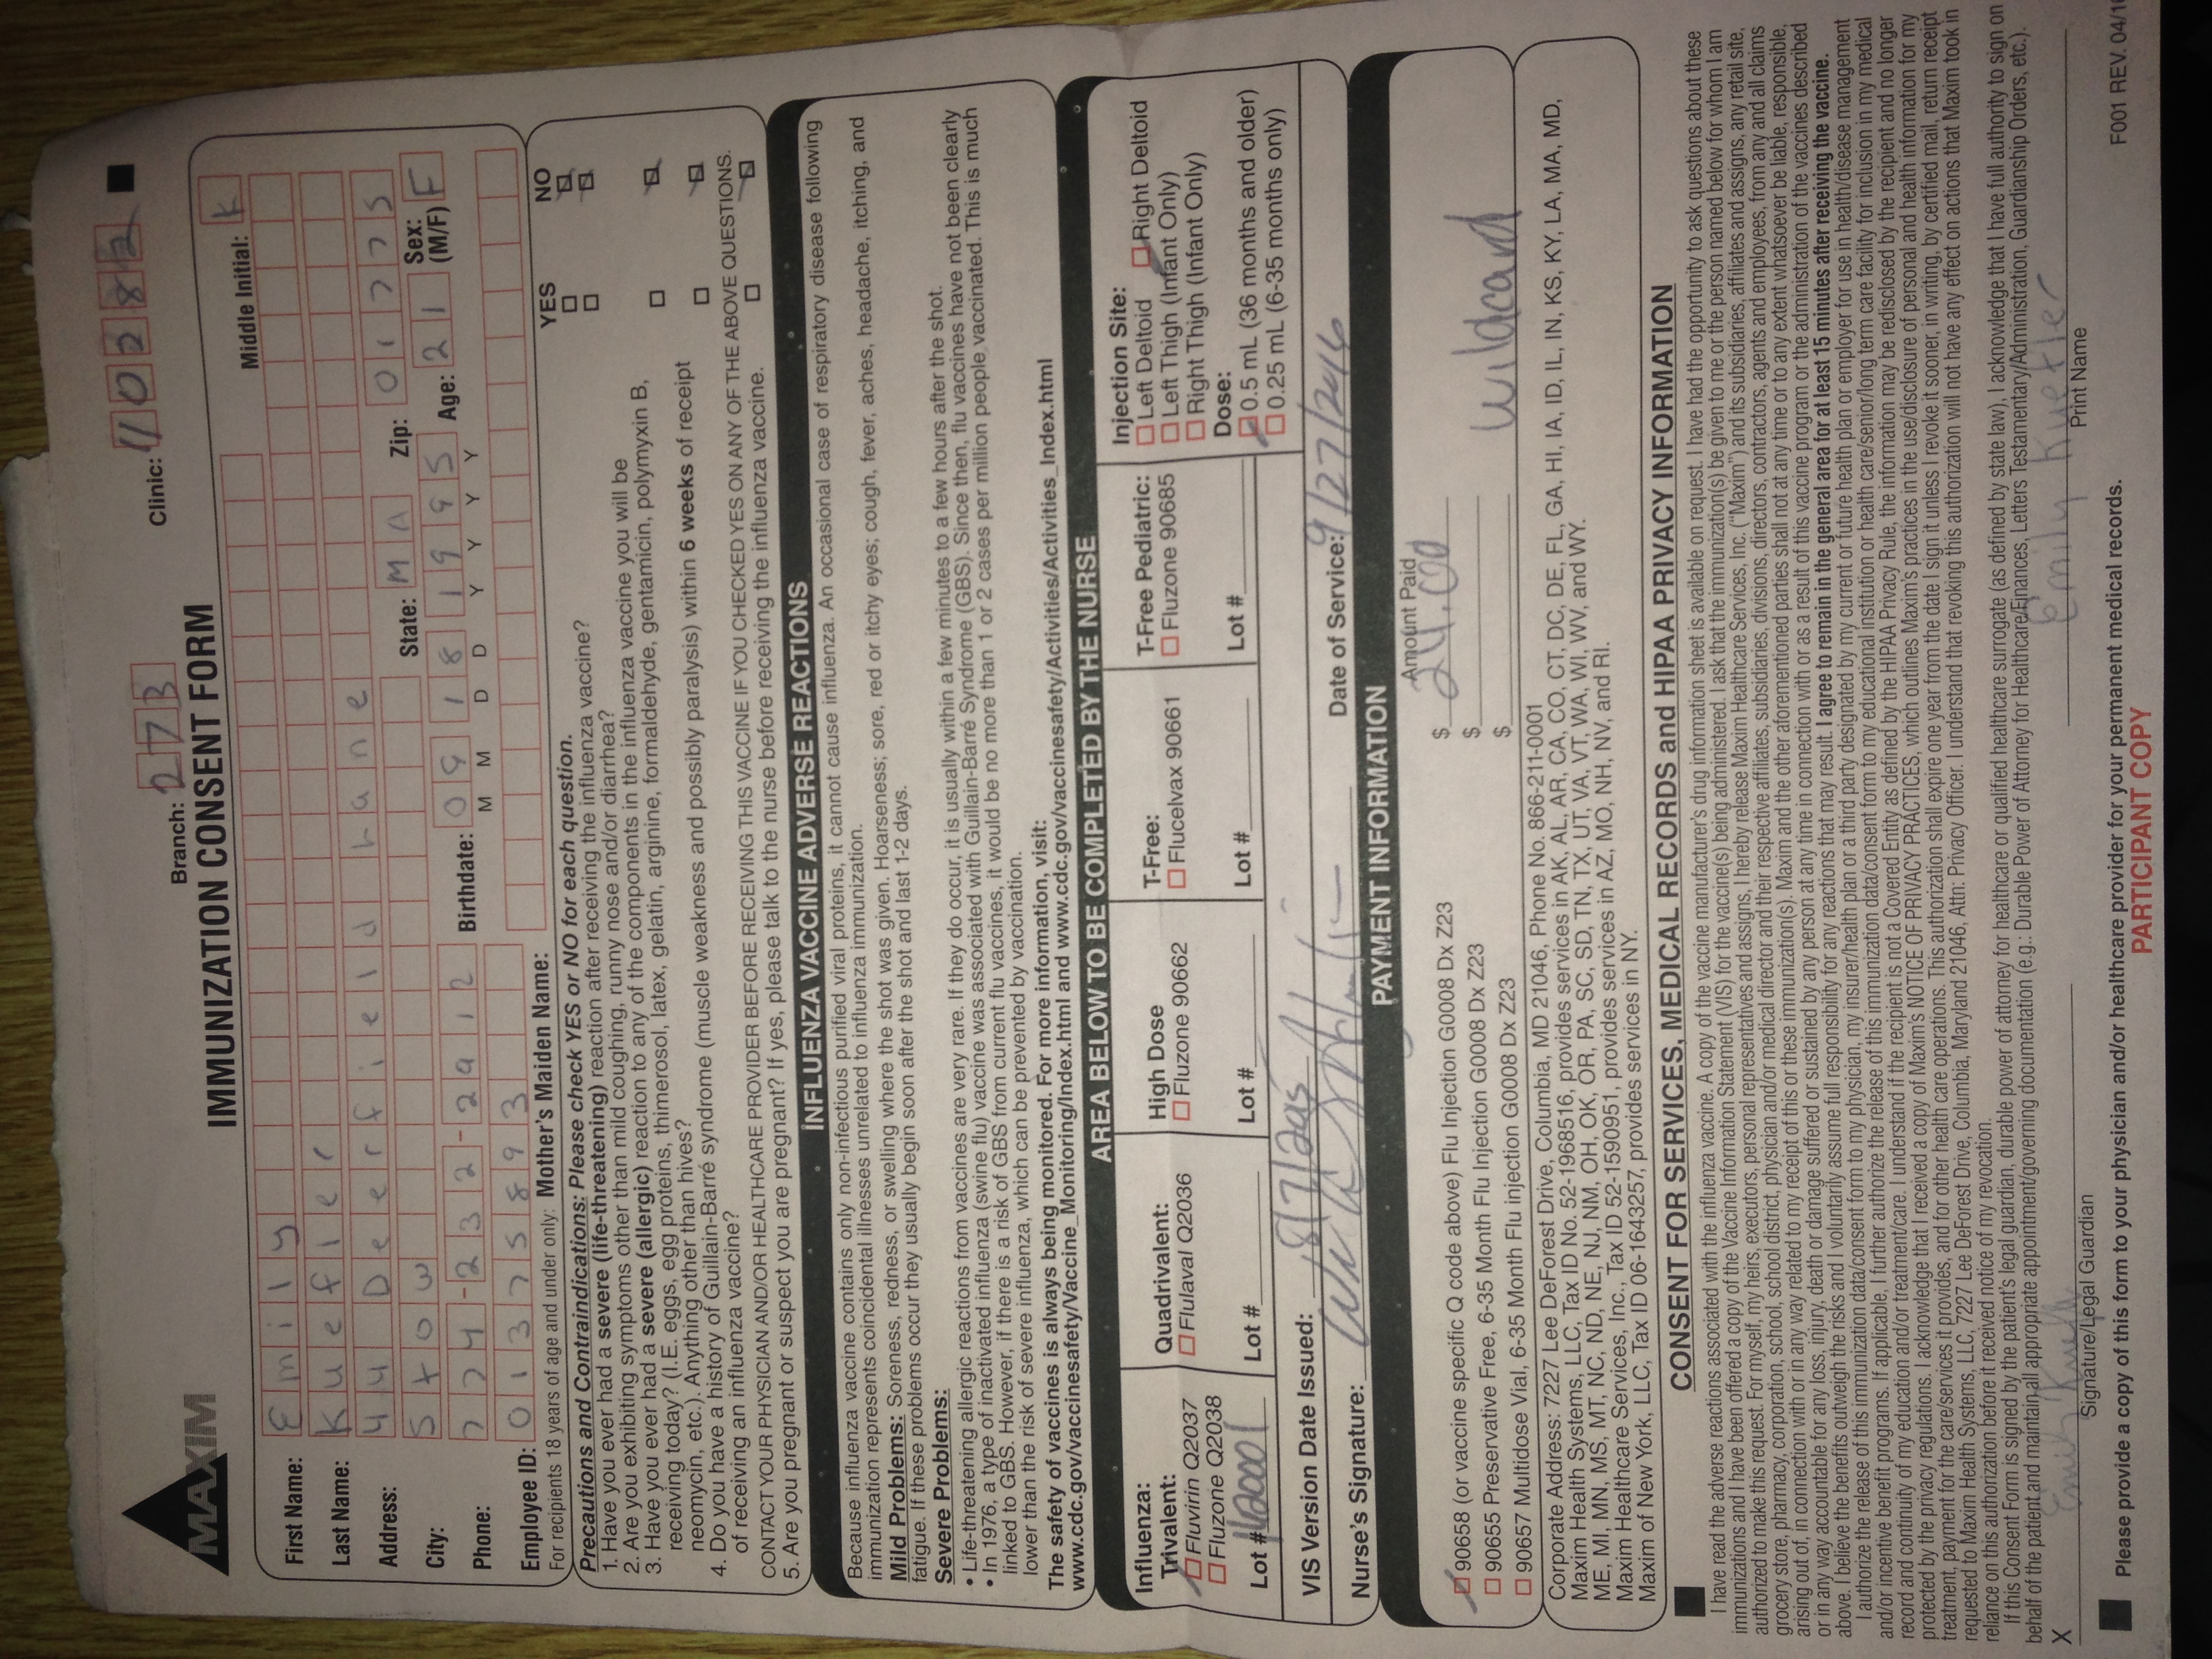 MAXIM
Branch: 273
Clinic: 110282
IMMUNIZATION CONSENT FORM
First Name: Emily
Middle Initial: K
Last Name: Kuefler
Address: 44 Deerfield Lane
City: Stow State: MA Zip: 01775
Phone: 774-232-2912 Birthdate: 09 18 1995 Age: 21 Sex: (M/F) F
M M D D Y Y Y Y
Employee ID: 01375893
For recipients 18 years of age and under only: Mother's Maiden Name:
Precautions and Contraindications: Please check YES or NO for each question. YES NO
1. Have you ever had a severe (life-threatening) reaction after receiving the influenza vaccine?
2. Are you exhibiting symptoms other than mild coughing, runny nose and/or diarrhea?
3. Have you ever had a severe (allergic) reaction to any of the components in the influenza vaccine you will be
receiving today? (I.E. eggs, egg proteins, thimerosol, latex, gelatin, arginine, formaldehyde, gentamicin, polymyxin B,
neomycin, etc.). Anything other than hives?
4. Do you have a history of Guillain-Barré syndrome (muscle weakness and possibly paralysis) within 6 weeks of receipt
of receiving an influenza vaccine?
CONTACT YOUR PHYSICIAN AND/OR HEALTHCARE PROVIDER BEFORE RECEIVING THIS VACCINE IF YOU CHECKED YES ON ANY OF THE ABOVE QUESTIONS.
5. Are you pregnant or suspect you are pregnant? If yes, please talk to the nurse before receiving the influenza vaccine.
INFLUENZA VACCINE ADVERSE REACTIONS
Because influenza vaccine contains only non-infectious purified viral proteins, it cannot cause influenza. An occasional case of respiratory disease following
immunization represents coincidental illnesses unrelated to influenza immunization.
Mild Problems: Soreness, redness, or swelling where the shot was given. Hoarseness; sore, red or itchy eyes; cough, fever, aches, headache, itching, and
fatigue. If these problems occur they usually begin soon after the shot and last 1-2 days.
Severe Problems:
• Life-threatening allergic reactions from vaccines are very rare. If they do occur, it is usually within a few minutes to a few hours after the shot.
• In 1976, a type of inactivated influenza (swine flu) vaccine was associated with Guillain-Barré Syndrome (GBS). Since then, flu vaccines have not been clearly
linked to GBS. However, if there is a risk of GBS from current flu vaccines, it would be no more than 1 or 2 cases per million people vaccinated. This is much
lower than the risk of severe influenza, which can be prevented by vaccination.
The safety of vaccines is always being monitored. For more information, visit:
www.cdc.gov/vaccinesafety/Vaccine_Monitoring/Index.html and www.cdc.gov/vaccinesafety/Activities/Activities_Index.html
AREA BELOW TO BE COMPLETED BY THE NURSE
Influenza:
Trivalent: Quadrivalent: High Dose T-Free: T-Free Pediatric: Injection Site:
Fluvirin Q2037 Flulaval Q2036 Fluzone 90662 Flucelvax 90661 Fluzone 90685 Left Deltoid Right Deltoid
Fluzone Q2038 Left Thigh (Infant Only)
Right Thigh (Infant Only)
Lot # Lot # Lot # Lot # Lot # Dose:
0.5 mL (36 months and older)
0.25 mL (6-35 months only)
VIS Version Date Issued: Date of Service: 9/27/2016
Nurse's Signature:
PAYMENT INFORMATION
Amount Paid
90658 (or vaccine specific Q code above) Flu Injection G0008 Dx Z23 $
90655 Preservative Free, 6-35 Month Flu Injection G0008 Dx Z23 $
90657 Multidose Vial, 6-35 Month Flu injection G0008 Dx Z23 $ wildcard
Corporate Address: 7227 Lee DeForest Drive, Columbia, MD 21046, Phone No. 866-211-0001
Maxim Health Systems, LLC, Tax ID No. 52-1968516, provides services in AK, AL, AR, CA, CO, CT, DC, DE, FL, GA, HI, IA, ID, IL, IN, KS, KY, LA, MA, MD,
ME, MI, MN, MS, MT, NC, ND, NE, NJ, NM, OH, OK, OR, PA, SC, SD, TN, TX, UT, VA, VT, WA, WI, WV, and WY.
Maxim Healthcare Services, Inc., Tax ID 52-1590951, provides services in AZ, MO, NH, NV, and RI.
Maxim of New York, LLC, Tax ID 06-1643257, provides services in NY.
CONSENT FOR SERVICES, MEDICAL RECORDS and HIPAA PRIVACY INFORMATION
I have read the adverse reactions associated with the influenza vaccine. A copy of the vaccine manufacturer's drug information sheet is available on request. I have had the opportunity to ask questions about these
immunizations and I have been offered a copy of the Vaccine Information Statement (VIS) for the vaccine(s) being administered. I ask that the immunization(s) be given to me or the person named below for whom I am
authorized to make this request. For myself, my heirs, executors, personal representatives and assigns, I hereby release Maxim Healthcare Services, Inc. ("Maxim") and its subsidiaries, affiliates and assigns, any retail site,
grocery store, pharmacy, corporation, school, school district, physician and/or medical director and their respective affiliates, subsidiaries, divisions, directors, contractors, agents and employees, from any and all claims
arising out of, in connection with or in any way related to my receipt of this or these immunization(s). Maxim and the other aforementioned parties shall not at any time or to any extent whatsoever be liable, responsible,
or in any way accountable for any loss, injury, death or damage suffered or sustained by any person at any time in connection with or as a result of this vaccine program or the administration of the vaccines described
above. I believe the benefits outweigh the risks and I voluntarily assume full responsibility for any reactions that may result. I agree to remain in the general area for at least 15 minutes after receiving the vaccine.
I authorize the release of this immunization data/consent form to my physician, my insurer/health plan or a third party designated by my current or future health plan or employer for use in health/disease management
and/or incentive benefit programs. If applicable, I further authorize the release of this immunization data/consent form to my educational institution or health care/senior/long term care facility for inclusion in my medical
record and continuity of my education and/or treatment/care. I understand if the recipient is not a Covered Entity as defined by the HIPAA Privacy Rule, the information may be redisclosed by the recipient and no longer
protected by the privacy regulations. I acknowledge that I received a copy of Maxim's NOTICE OF PRIVACY PRACTICES, which outlines Maxim's practices in the use/disclosure of personal and health information for my
treatment, payment for the care/services it provides, and for other health care operations. This authorization shall expire one year from the date I sign it unless I revoke it sooner, in writing, by certified mail, return receipt
requested to Maxim Health Systems, LLC, 7227 Lee DeForest Drive, Columbia, Maryland 21046, Attn: Privacy Officer. I understand that revoking this authorization will not have any effect on actions that Maxim took in
reliance on this authorization before it received notice of my revocation.
If this Consent Form is signed by the patient's legal guardian, durable power of attorney for healthcare or qualified healthcare surrogate (as defined by state law), I acknowledge that I have full authority to sign on
behalf of the patient and maintain all appropriate appointment/governing documentation (e.g.: Durable Power of Attorney for Healthcare/Finances, Letters Testamentary/Administration, Guardianship Orders, etc.).
X Emily Kuefler
Signature/Legal Guardian Print Name
Please provide a copy of this form to your physician and/or healthcare provider for your permanent medical records. F001 REV. 04/1
PARTICIPANT COPY